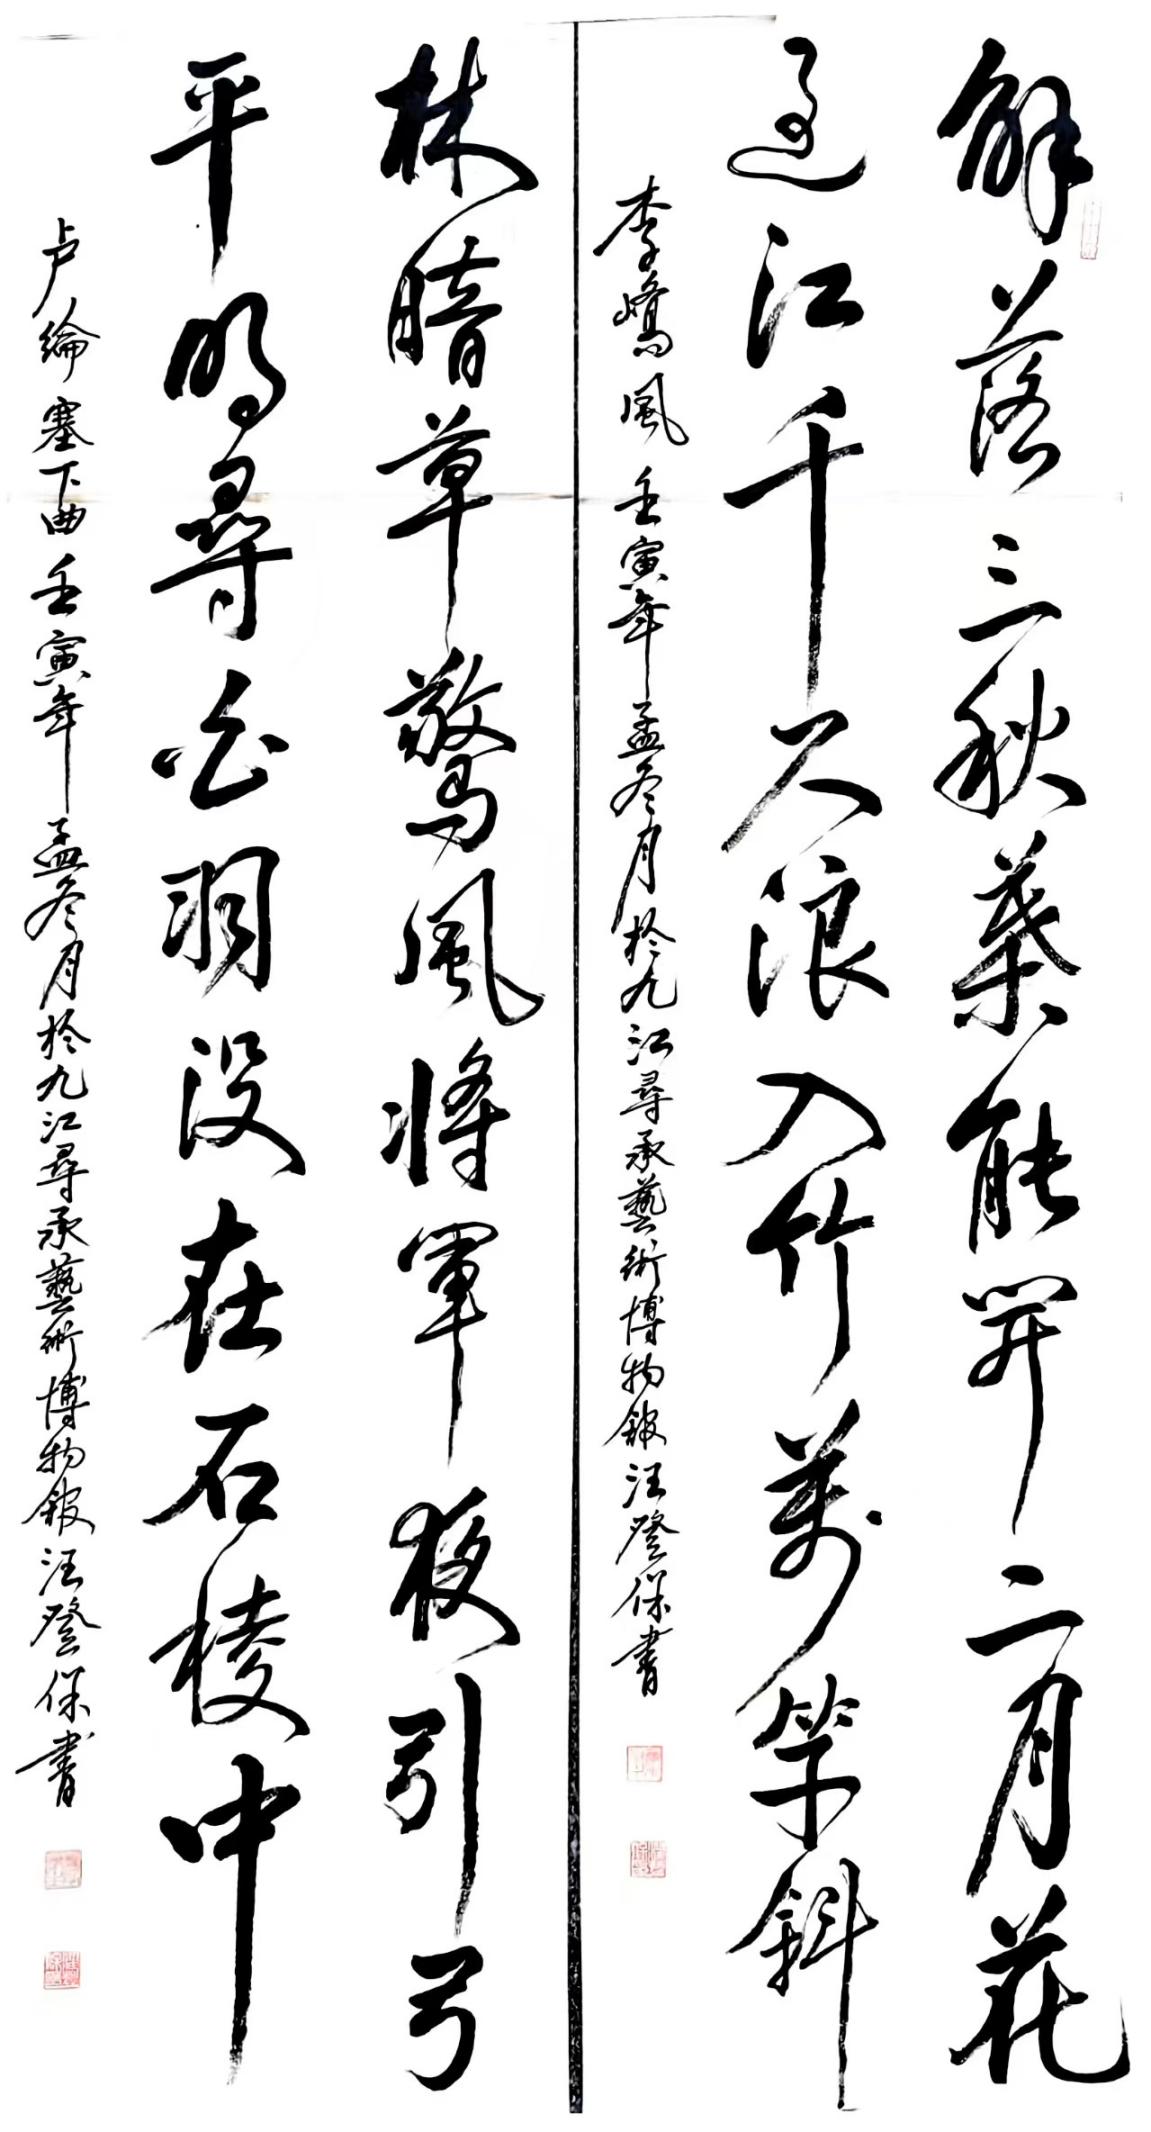 解落三秋葉能開二月花
過江千尺浪入竹萬竿斜
李嶠風 壬寅年孟冬月於九江尋承藝術博物館汪登保書
林暗草驚風將軍夜引弓
平明尋白羽沒在石棱中
卢綸塞下曲壬寅年孟冬月於九江尋承藝術博物館汪登保書